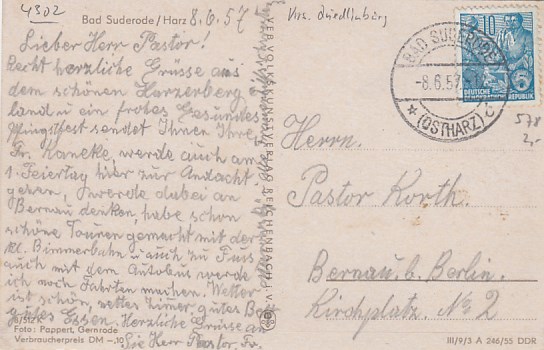 4302
Bad Suderode / Harz 8.6.57
Krs. Quedlinburg
Lieber Herr Pastor!
Recht herzliche Grüsse aus
dem schönen Harzerberg
land u ein frohes Gesundes
Pfingstfest sendet Ihnen Ihre
Fr. Kaneke, werde auch am
1. Feiertag hier zur Andacht
gehen, werde dabei an
Bernau denken, habe schon
schöne Touren gemacht mit der
kl. Bimmerbahn u auch zu Fuss
auch mit dem Autobus werde
ich noch Fahrten machen. Wetter
ist schön, nettes Zimer, gutes Bett
gutes Essen. Herzliche Grüsse an
Sie Herr Pastor, Fr.
Foto: Pappert, Gernrode
Verbraucherpreis DM -,10
VEB VOLKSKUNSTVERLAG REICHENBACH I. V.
BAD SUDERODE
-8.6.57
(OSTHARZ)
10
5
DEUTSCHE
DEMOKRATISCHE REPUBLIK
578
2,-
Herrn.
Pastor Korth.
Bernau b. Berlin.
Kirchplatz. No 2
III/9/3 A 246/55 DDR